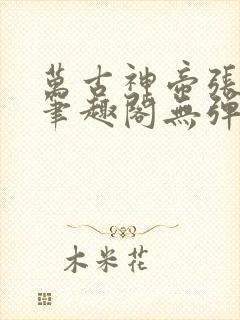 萬古神帝張
筆趣閣無彈
木米花